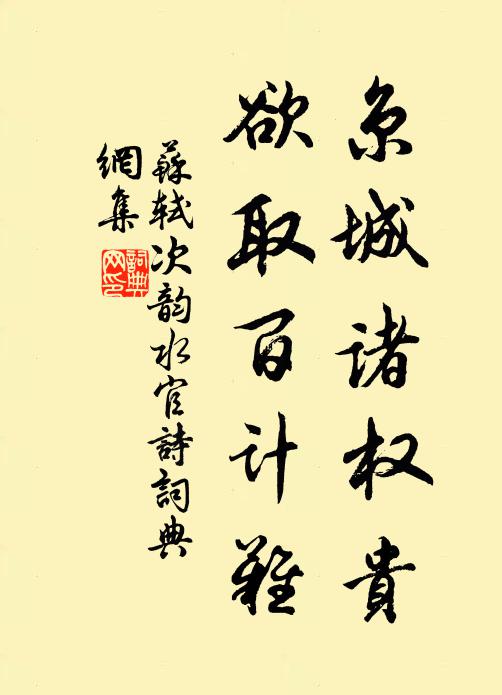 京城诸权貴
欲取百计難
蘇軾次韵水官詩詞典
網集
詞典
网印